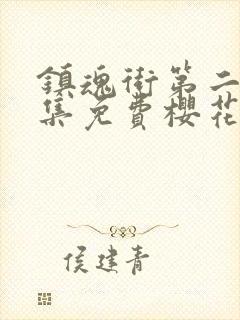 鎮魂街第二
集免費櫻花
侯建青